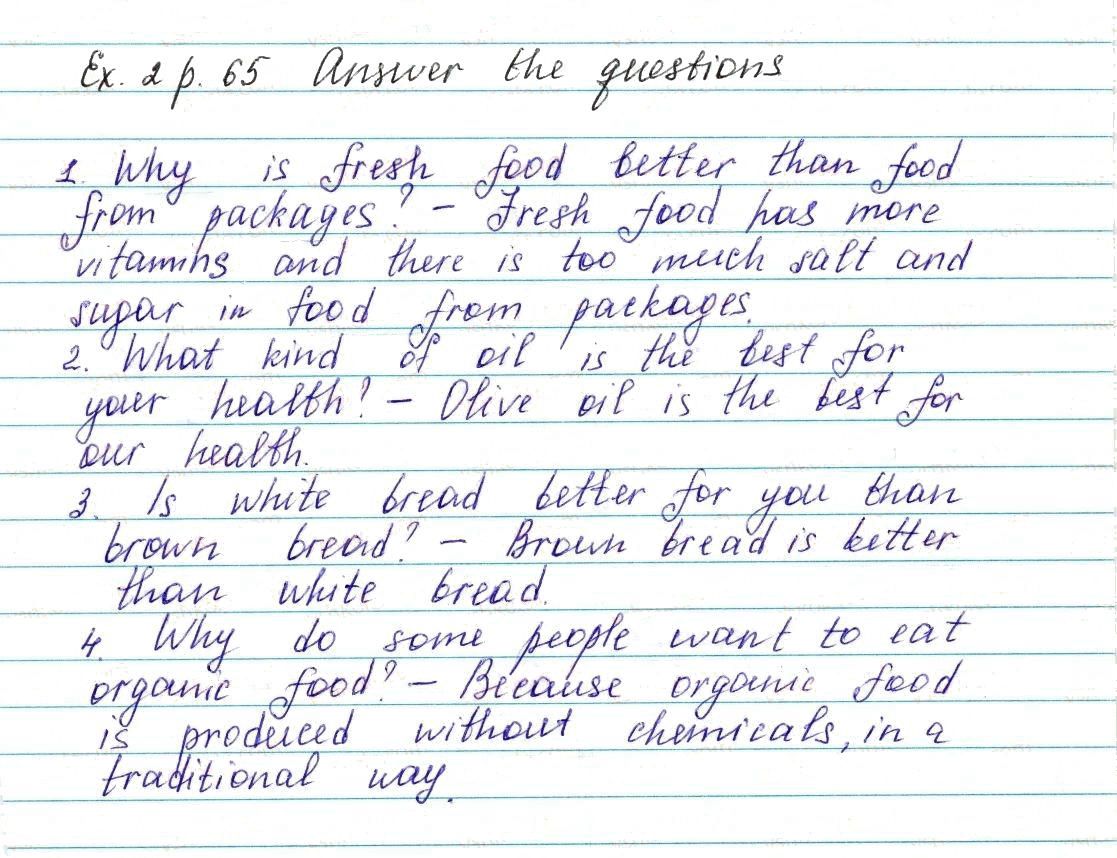 Ex. 2 p. 65 Answer the questions
1. Why is fresh food better than food
from packages? – Fresh food has more
vitamins and there is too much salt and
sugar in food from packages.
2. What kind of oil is the best for
your health? – Olive oil is the best for
our health.
3. Is white bread better for you than
brown bread? – Brown bread is better
than white bread.
4. Why do some people want to eat
organic food? – Because organic food
is produced without chemicals, in a
traditional way.